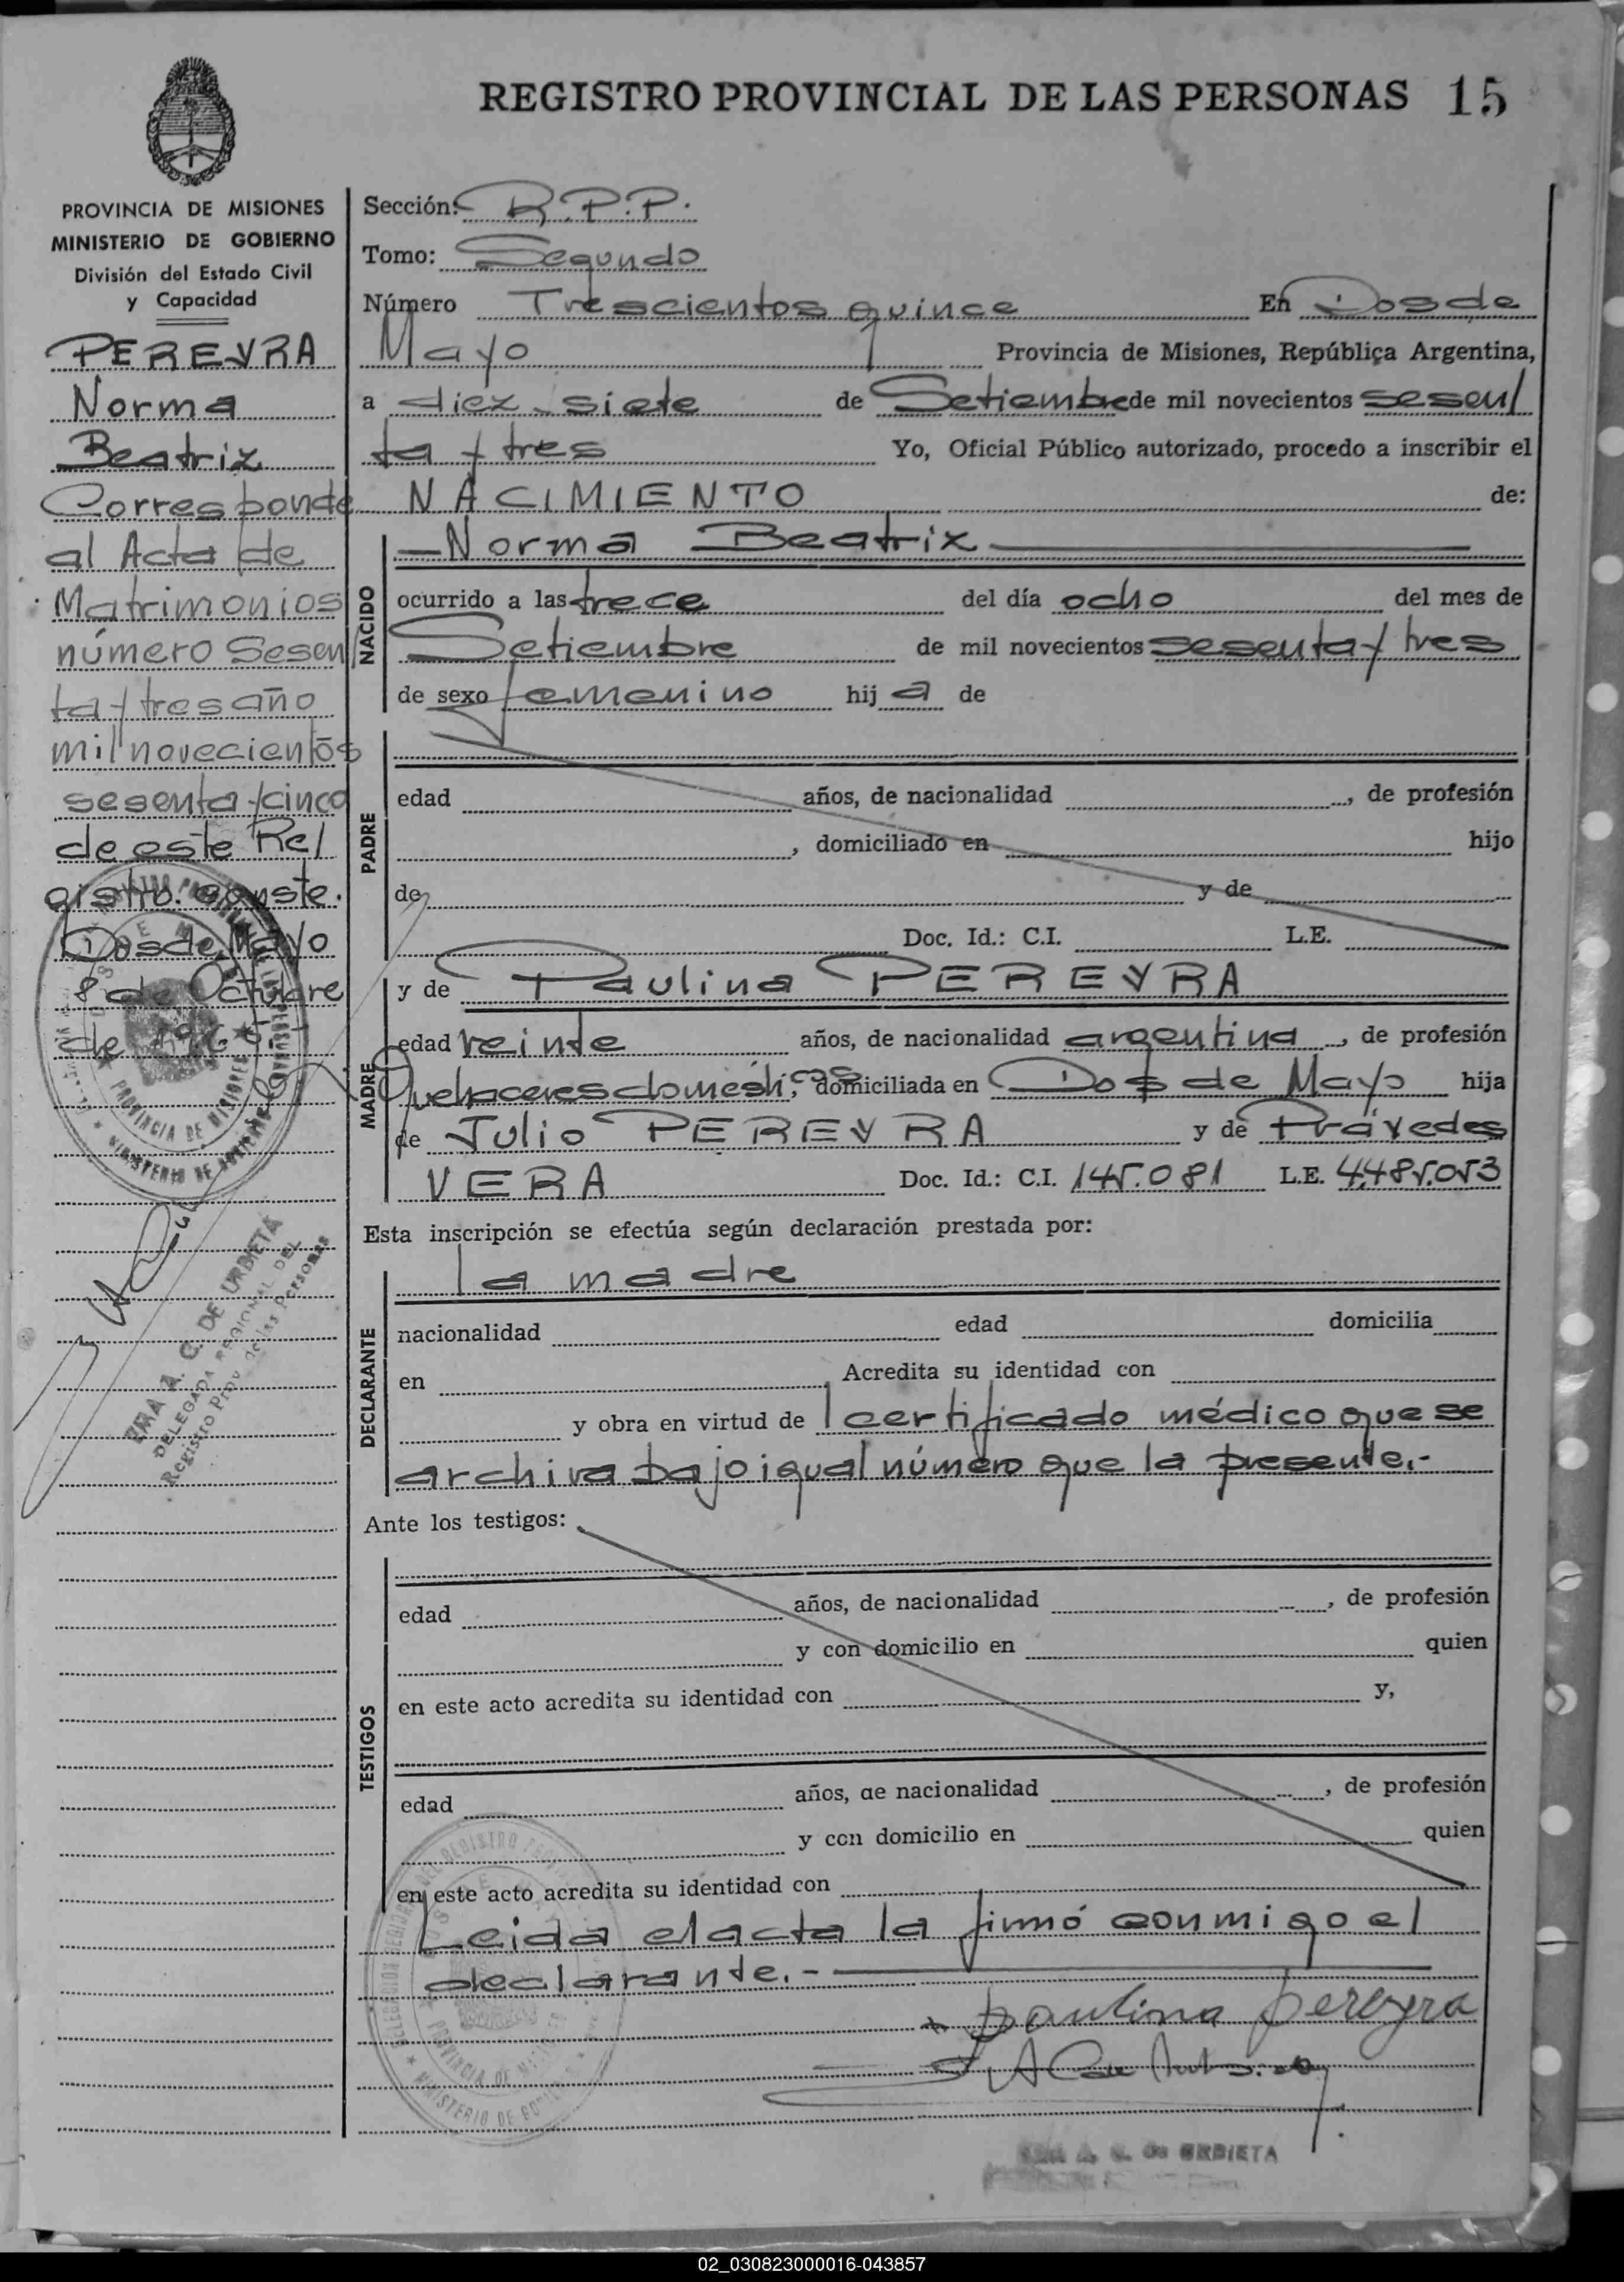 REGISTRO PROVINCIAL DE LAS PERSONAS 15
PROVINCIA DE MISIONES
MINISTERIO DE GOBIERNO
División del Estado Civil
y Capacidad
PEREYRA
Norma
Beatriz
Corresponde
al Acta de
Matrimonios
número Sesen
ta y tres año
mil novecientos
sesenta y cinco
de este Re/
gistro. conste.
Dos de Mayo
8 de Octubre
de 1965.-
ERA A. C. DE URBIETA
DELEGADA REGIONAL DEL
Registro Prov. de las Personas
Sección: R.P.P.
Tomo: Segundo
Número Trescientos quince En Dos de
Mayo Provincia de Misiones, República Argentina,
a diez y siete de Setiembre de mil novecientos sesen/
ta y tres Yo, Oficial Público autorizado, procedo a inscribir el
NACIMIENTO de:
NACIDO
—Norma Beatrix—
ocurrido a las trece del día ocho del mes de
Setiembre de mil novecientos sesenta y tres
de sexo femenino hija de
PADRE
edad años, de nacionalidad , de profesión
, domiciliado en hijo
de y de
Doc. Id.: C.I. L.E.
MADRE
y de Paulina PEREYRA
edad veinte años, de nacionalidad argentina, de profesión
Quehaceres domésticos, domiciliada en Dos de Mayo hija
de Julio PEREYRA y de Práxedes
VERA Doc. Id.: C.I. 145.081 L.E. 4.485.053
Esta inscripción se efectúa según declaración prestada por:
DECLARANTE
la madre
nacionalidad edad domicilia
en Acredita su identidad con
y obra en virtud de l certificado médico que se
archiva bajo igual número que la presente.-
Ante los testigos:
TESTIGOS
edad años, de nacionalidad , de profesión
y con domicilio en quien
en este acto acredita su identidad con y,
edad años, de nacionalidad , de profesión
y con domicilio en quien
en este acto acredita su identidad con
Leida el acta la firmó conmigo el
declarante.-
paulina pereyra
A. C. de URBIETA
02_030823000016-043857